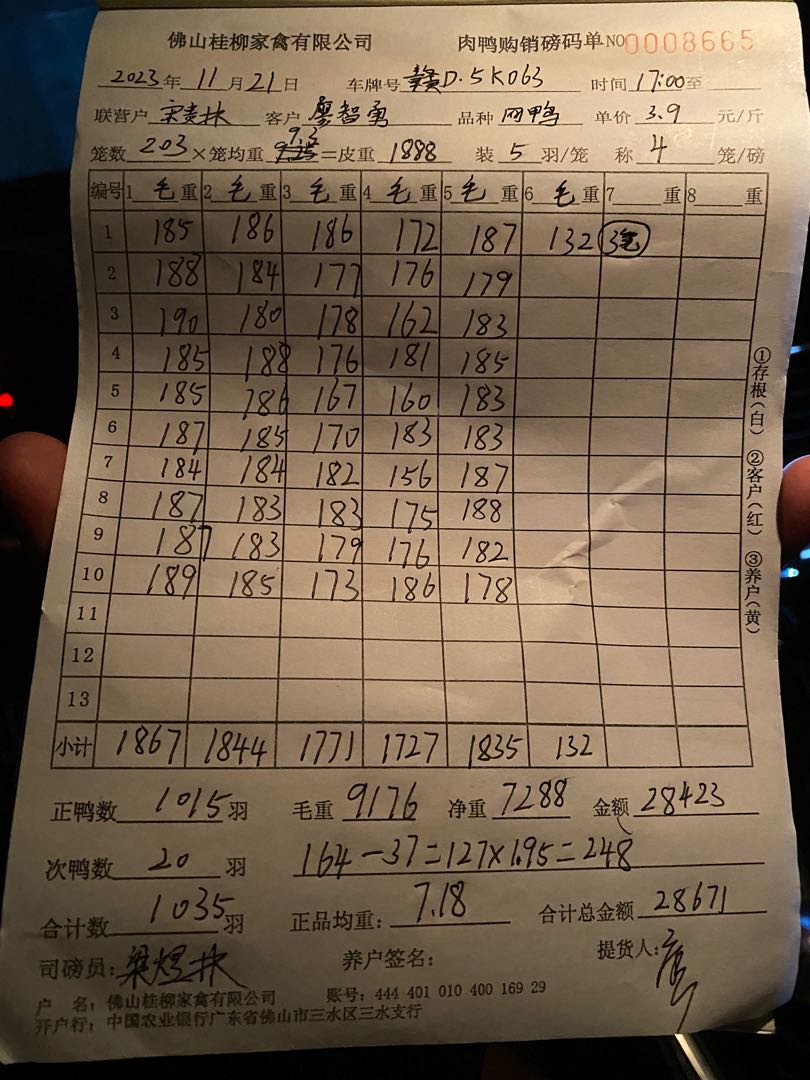 佛山桂柳家禽有限公司 肉鸭购销磅码单 NO 0008665
2023年 11月 21日 车牌号 赣D·5K063 时间 17:00至
联营户 客户 廖智勇 品种 网鸭 单价 3.9 元/斤
9.3
笼数 203 ×笼均重 9.25 =皮重 1888 装 5 羽/笼 称 4 笼/磅
编号 1 毛 重 2 毛 重 3 毛 重 4 毛 重 5 毛 重 6 毛 重 7 重 8 重
1 185 186 186 172 187 132 3笼
2 188 184 177 176 179
3 190 180 178 162 183
4 185 188 176 181 185
5 185 186 167 160 183
6 187 185 170 183 183
7 184 184 182 156 187
8 187 183 183 175 188
9 187 183 179 176 182
10 189 185 173 186 178
11
12
13
小计 1867 1844 1771 1727 1835 132
正鸭数 1015 羽 毛重 9176 净重 7288 金额 28423
次鸭数 20 羽 164-37=127×1.95=248
合计数 1035 羽 正品均重: 7.18 合计总金额 28671
司磅员: 梁煜林 养户签名: 提货人:
户 名: 佛山桂柳家禽有限公司 账号: 444 401 010 400 169 29
开户行: 中国农业银行广东省佛山市三水区三水支行
①存根(白) ②客户(红) ③养户(黄)